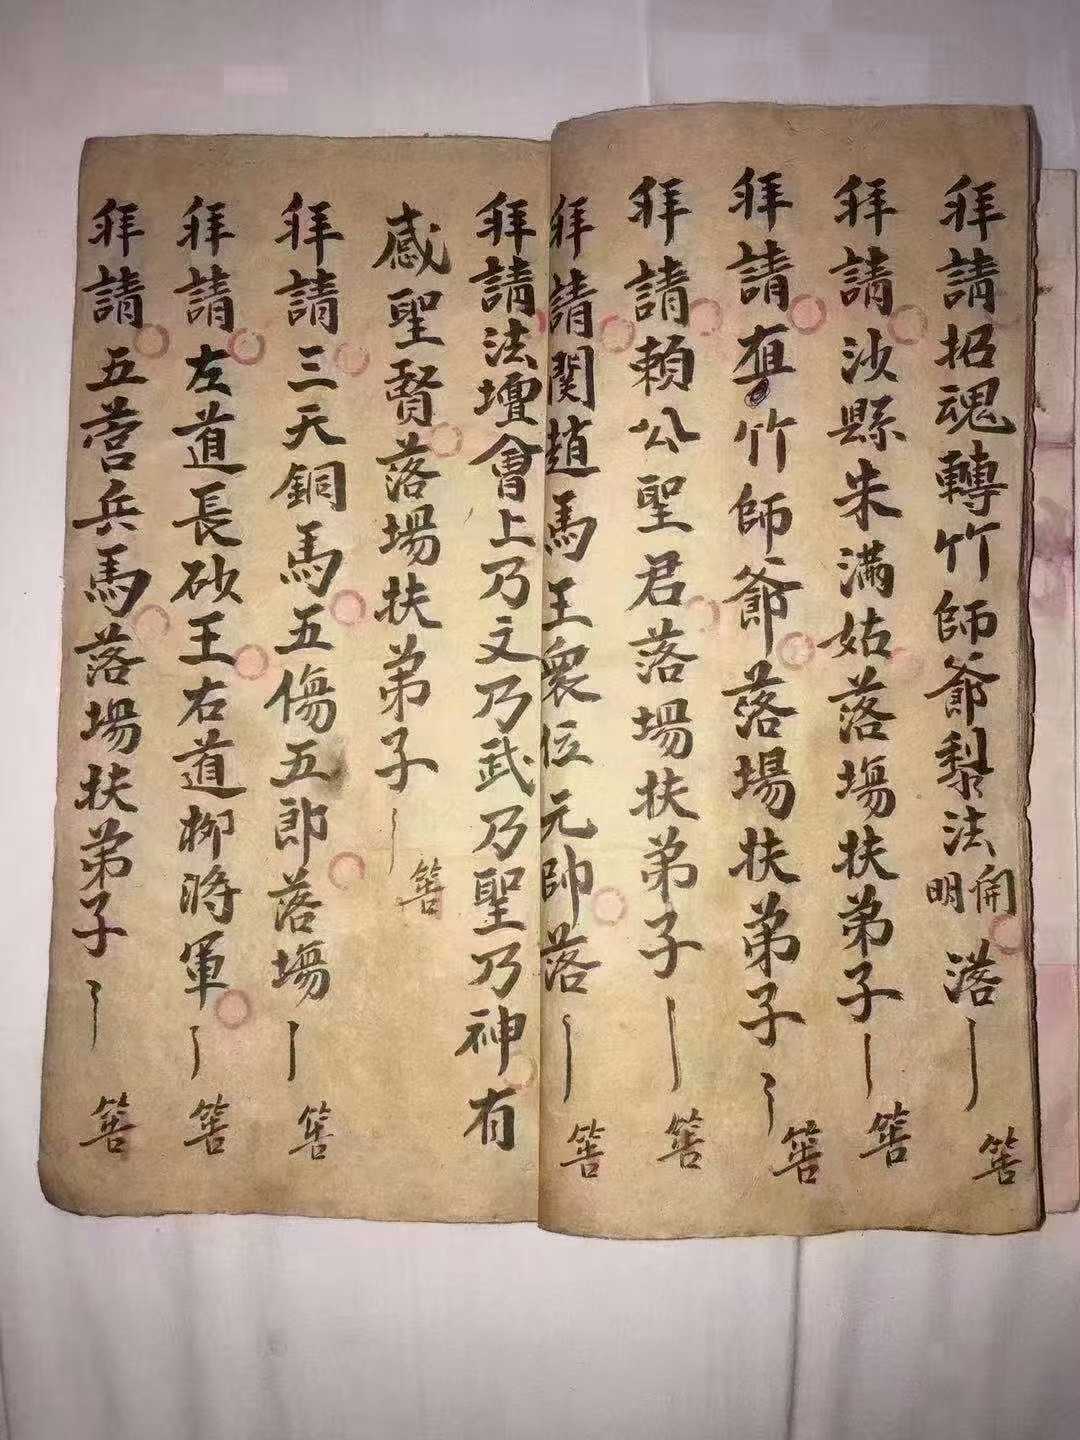 拜請招魂轉竹師爺黎法開明落 筶
拜請沙縣朱滿姑落塲扶弟子 筶
拜請竹師爺落場扶弟子 筶
拜請賴公聖君落場扶弟子 筶
拜請関趙馬王衆位元帥落 筶
拜請法壇會上乃文乃武乃聖乃神有
感聖賢落場扶弟子 筶
拜請三天銅馬五傷五郎落塲 筶
拜請左道長砂王右道柳將軍 筶
拜請五营兵馬落場扶弟子 筶